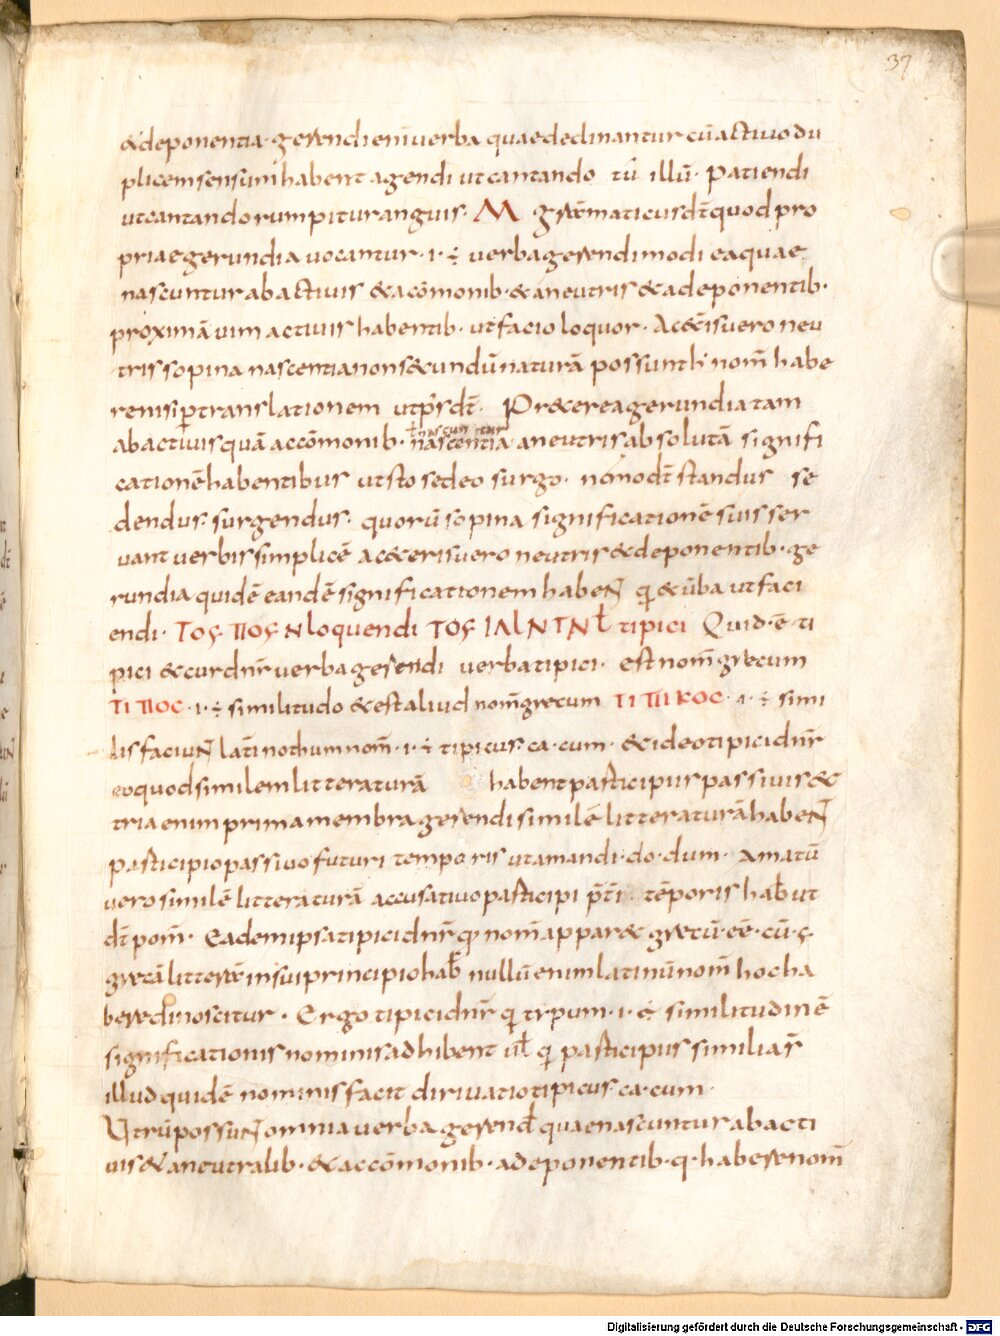 37
& deponentia · gerendi enī uerba quae declinantur cū actiuo du
plicem sensum habent agendi ut cantando tū illū · patiendi
ut cantando rumpitur anguis · M · grāmaticus dt̄ quod pro
priae gerundia uocantur · i · ÷ uerba gerendi modi ea quae
nascuntur ab actiuis & a cōmonib · & a neutris & a deponentib ·
proximā uim actiuis habentib · ut facio loquor · Ac&̄is uero neu
tris sopina nascentia non s&cundū naturā possunt nom̄ habe
re nisi ꝑ translationem ut p̄s dt̄ · Pr&erea gerundia tam
ab actiuis quā a ccōmonib · nascentia a neutris absolutā signifi
ł nascuntur
cationē habentibus ut sto sedeo surgo · nōmod̄t standus se
dendus · surgendus · quorū sopina significationē suis ser
uant uerbis simplicē ac&eris uero neutris & deponentib · ge
rundia quidē eandē significationem habeɴ̄ & ūba ut faci
endi · TOS · ΠOS N loquendi TOS tipici Quid · ē ti
pici & cur dnr̄ uerba gerendi uerba tipici · est nom̄ grecum
TIΠOC · i · ÷ similitudo & est aliud nom̄ grecum TIΠIKOC · i · ÷ simi
lis faciuɴ̄ latī nothum nom̄ · i · ÷ tipicus · ca · cum · & ideo tipici dnr̄
eo quod similem litteraturā habent participiis passiuis &
tria enim prima membra gerendi similē litteraturā habeɴ̄
participio passiuo futuri temporis ut amandi · do · dum · Amatū
uero similē litteraturā accusatiuo participi p̄t̄i tēporis hab̄ ut
dt̄ pom̄ · Eadem ipsa tipici dnr̄ nom̄ appar& grecū · eē · cū · ç
grecā litterā in sui principio hab̄ nullū enim latinū nom̄ hoc ha
bere dinoscitur · Ergo tipici dnr̄ typum · i · ÷ similitudinē
significationis nominis adhibent ul̄ participiis similia sr̄
illud quidē nominis facit diriuatio tipicus · ca · cum ·
Utrū possuɴ̄ omnia uerba gerend̄ quae nascuntur ab acti
uis & a neutralib · & a ccōmonib · a deponentib · q · habere nom̄
Digitalisierung gefördert durch die Deutsche Forschungsgemeinschaft - DFG